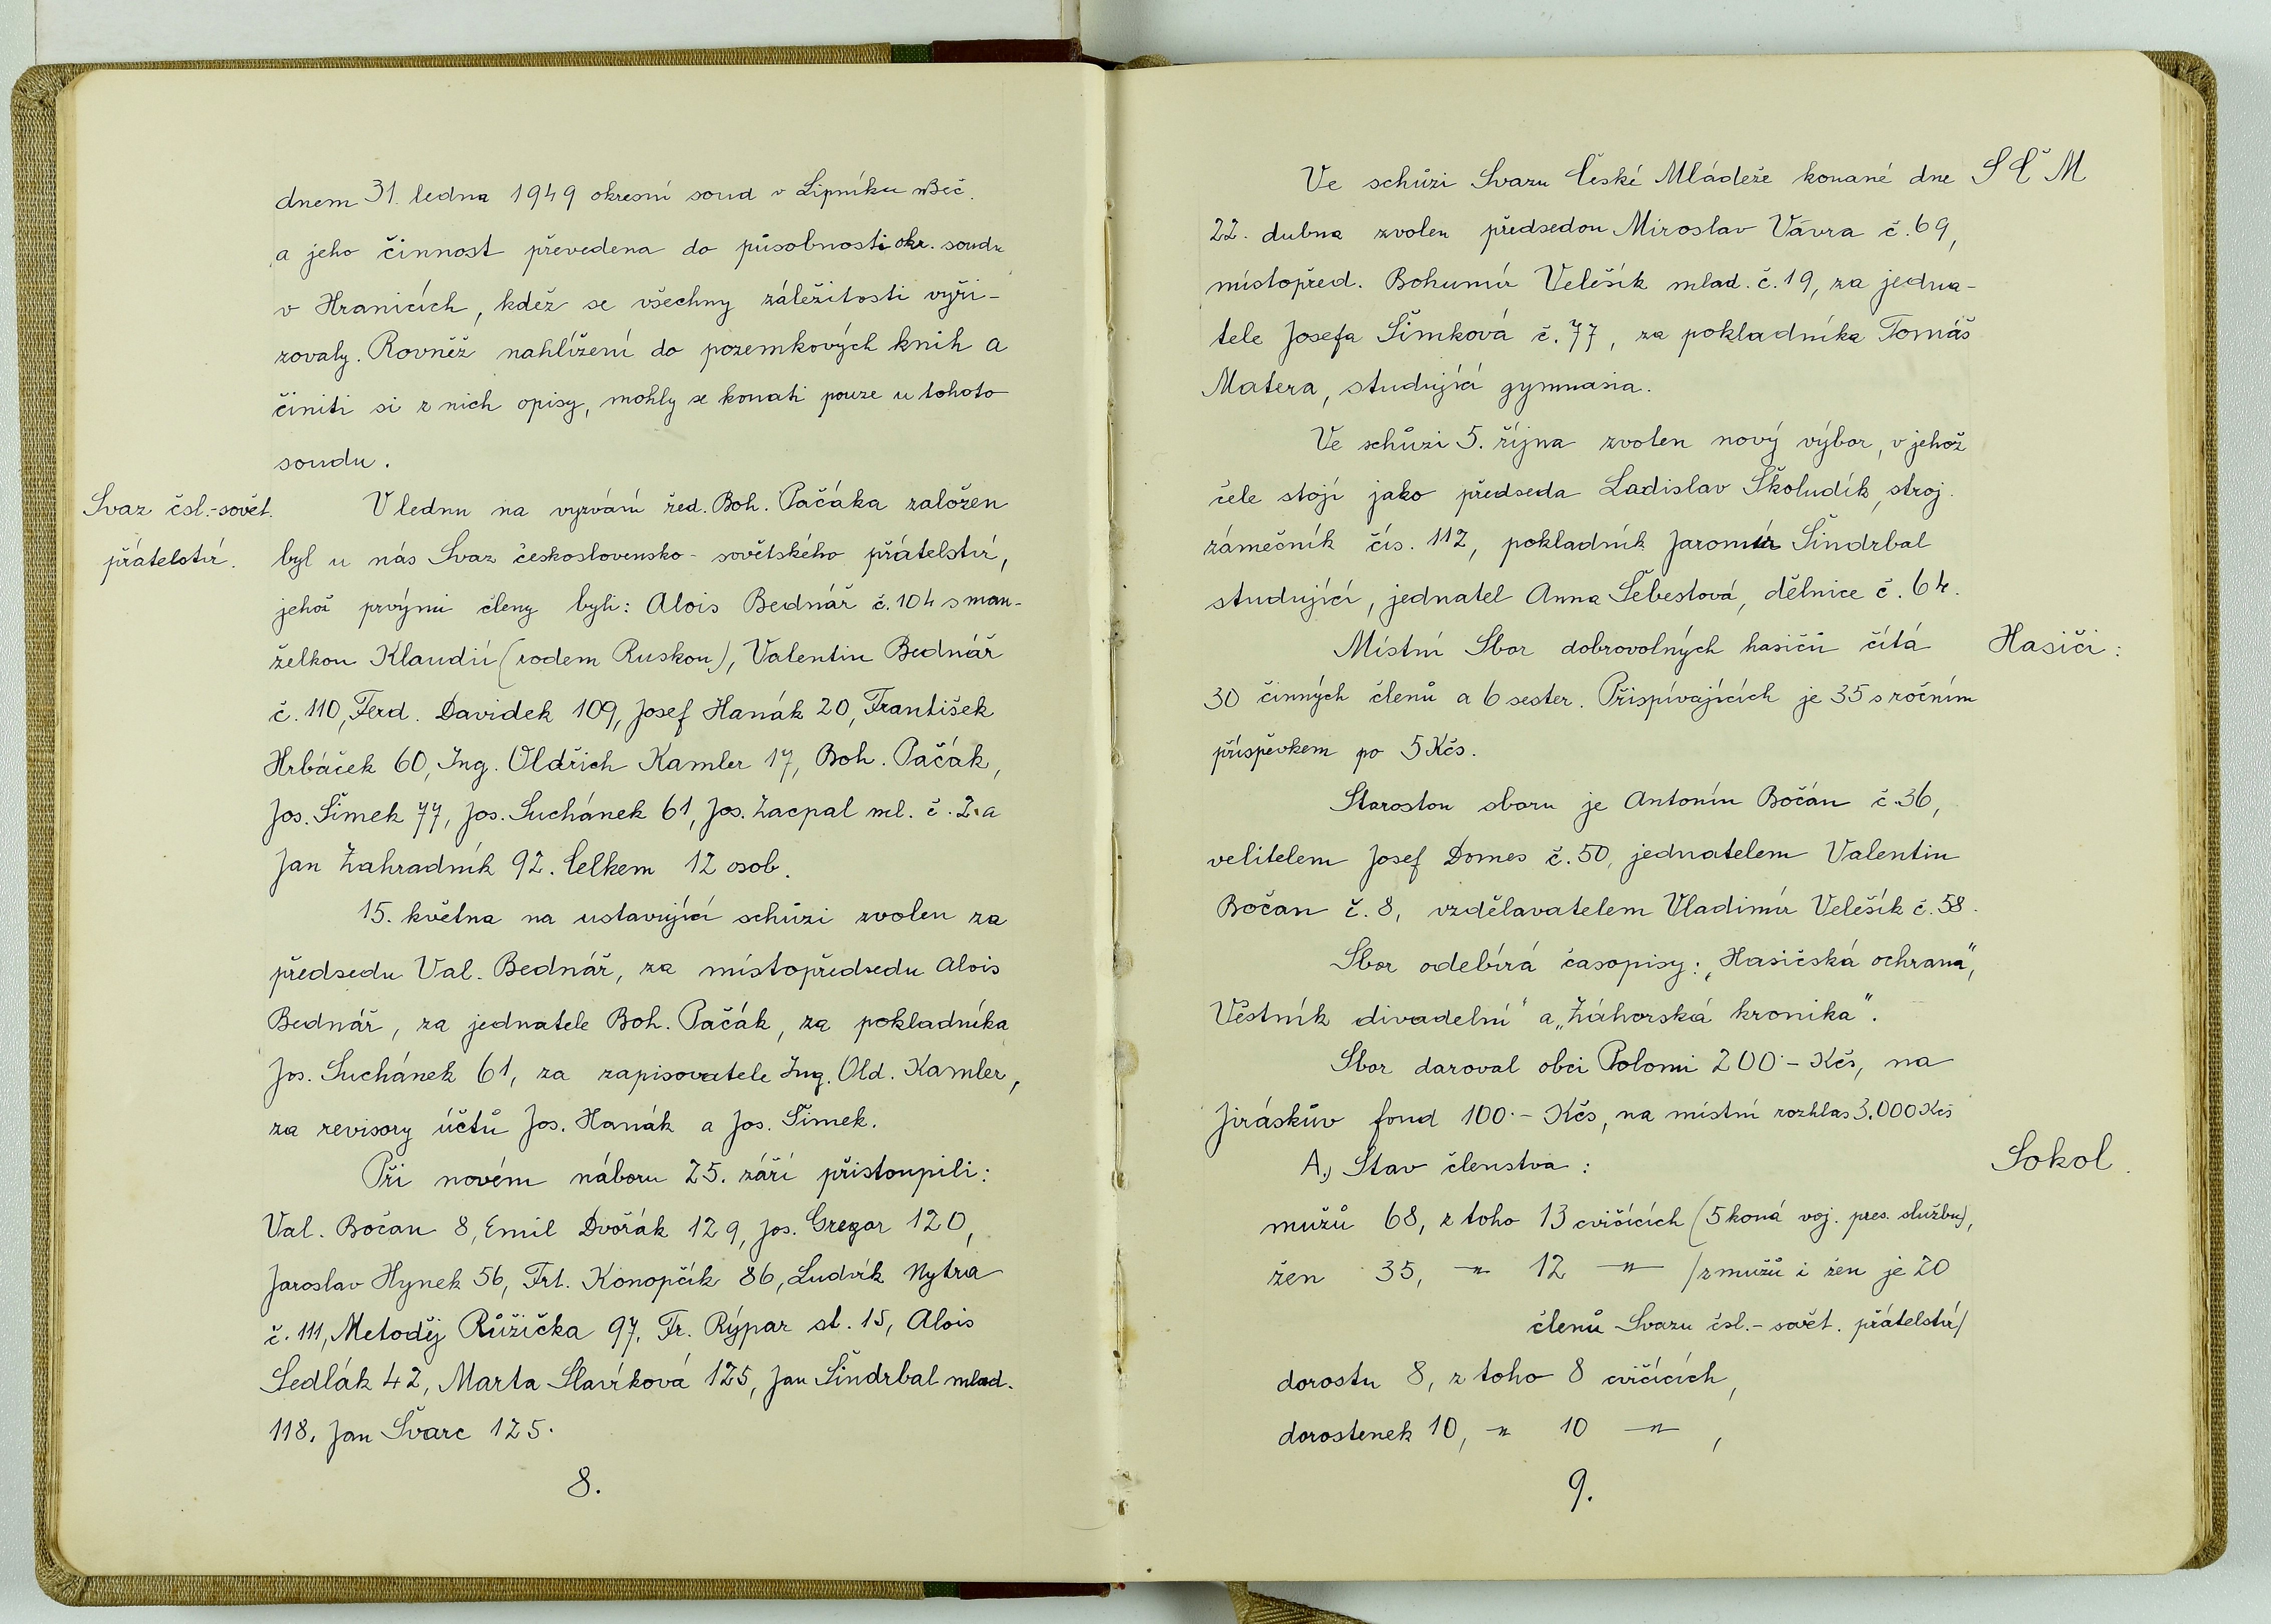 dnem 31. ledna 1949 okresní soud v Lipníku n Beč.
a jeho činnost převedena do působnosti okr. soudu
v Hranicích, kdež se všechny záležitosti vyři-
zovaly. Rovněž nahlížení do pozemkových knih a
činiti si z nich opisy, mohly se konati pouze u tohoto
soudu.
Svaz čsl.-sovět.
přátelství.
V lednu na vyzvání řed. Boh. Pačáka založen
byl u nás Svaz československo-sovětského přátelství,
jehož prvými členy byli: Alois Bednář č. 104 s man-
želkou Klaudií (rodem Ruskou), Valentin Bednář
č. 110, Ferd. Davidek 109, Josef Hanák 20, František
Hrbáček 60, Ing. Oldřich Kamler 17, Boh. Pačák,
Jos. Šimek 77, Jos. Suchánek 61, Jos. Zacpal ml. č. 2 a
Jan Zahradník 92. Celkem 12 osob.
15. května na ustavující schůzi zvolen za
předsedu Val. Bednář, za místopředsedu Alois
Bednář, za jednatele Boh. Pačák, za pokladníka
Jos. Suchánek 61, za zapisovatele Ing. Old. Kamler,
za revisory účtů Jos. Hanák a Jos. Šimek.
Při novém náboru 25. září přistoupili:
Val. Bočan 8, Emil Dvořák 129, Jos. Gregor 120,
Jaroslav Hynek 56, Frt. Konopčík 86, Ludvík Nytra
č. 111, Metoděj Růžička 97, Fr. Rýpar st. 15, Alois
Sedlák 42, Marta Slavíková 125, Jan Šindrbal mlad.
118, Jan Švarc 125.
8.
Ve schůzi Svazu České Mládeže konané dne
S Č M
22. dubna zvolen předsedou Miroslav Vávra č. 69,
místopřed. Bohumír Velešík mlad. č. 19, za jedna-
tele Josefa Šimková č. 77, za pokladníka Tomáš
Matera, studující gymnasia.
Ve schůzi 5. října zvolen nový výbor, v jehož
čele stojí jako předseda Ladislav Školudík, stroj.
zámečník čís. 112, pokladník Jaromír Šindrbal
studující, jednatel Anna Šebestová, dělnice č. 64.
Místní Sbor dobrovolných hasičů čítá
Hasiči:
30 činných členů a 6 sester. Přispívajících je 35 s ročním
příspěvkem po 5 Kčs.
Starostou sboru je Antonín Bočán č. 36,
velitelem Josef Domes č. 50, jednatelem Valentin
Bočan č. 8, vzdělavatelem Vladimír Velešík č. 58.
Sbor odebírá časopisy: „Hasičská ochrana",
Věstník divadelní" a „Záhorská kronika".
Sbor daroval obci Polomi 200·- Kčs, na
Jiráskův fond 100·- Kčs, na místní rozhlas 3.000 Kčs
Sokol.
A.) Stav členstva:
mužů 68, z toho 13 cvičících (5 koná voj. pres. službu),
žen 35, -"- 12 -"- /z mužů i žen je 20
členů Svazu čsl.-sovět. přátelství/
dorostu 8, z toho 8 cvičících,
dorostenek 10, -"- 10 -"- ,
9.